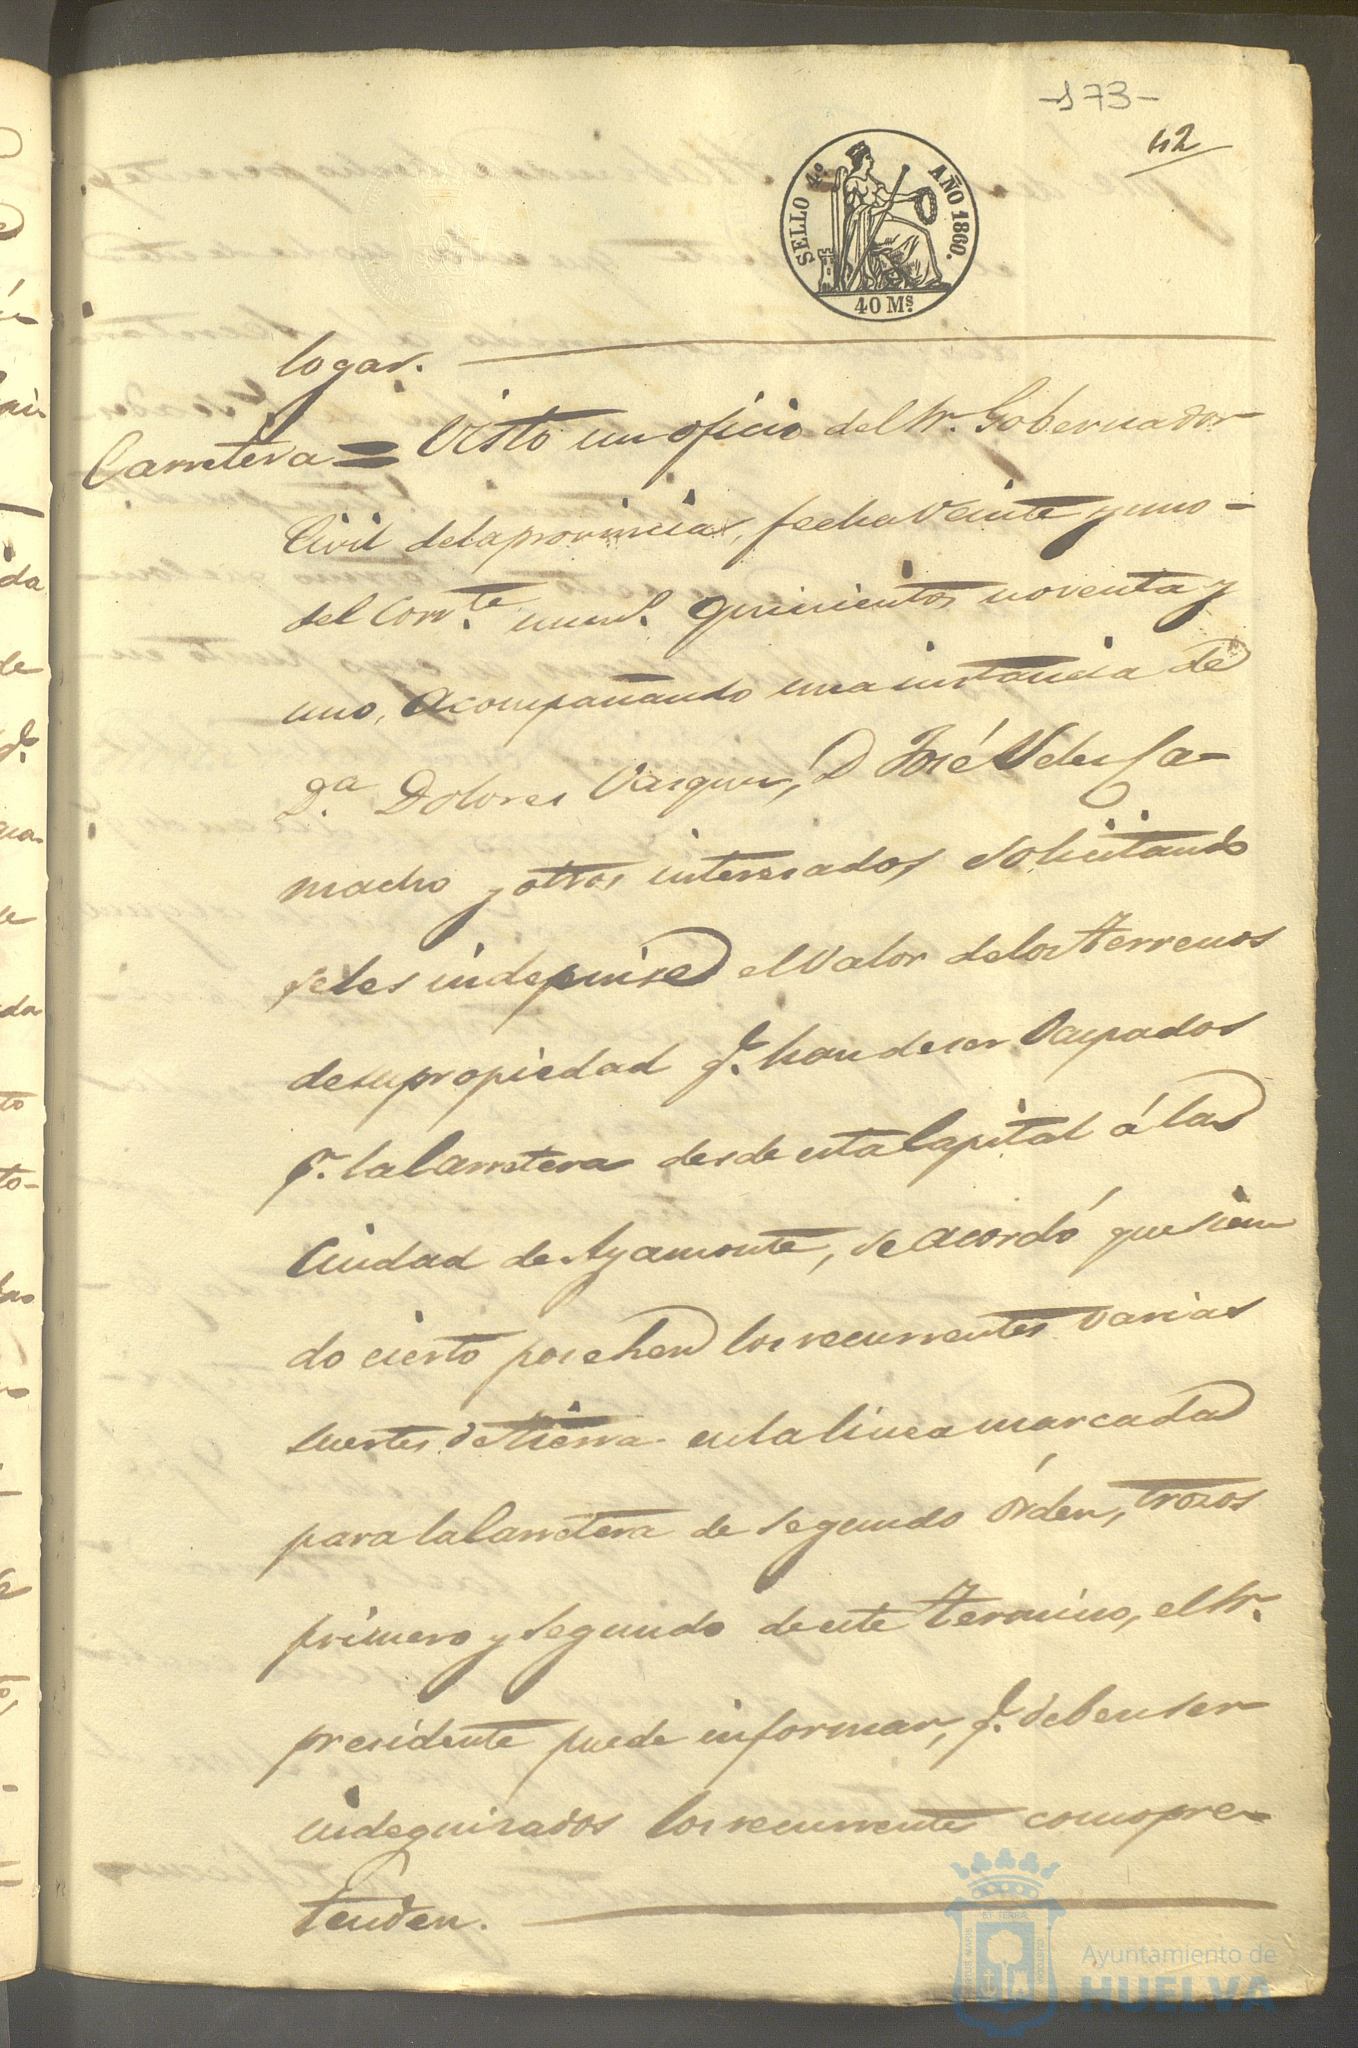 -173-
42
SELLO 4º AÑO 1860.
40 Ms.
logar.
Carretera = Visto un oficio del Sr. Gobernador
Civil de la provincia, fecha veinte y uno
del Corrte. numº. quinientos noventa y
uno, acompañando una instancia de
Dª. Dolores Vasquez, D José Velez Ca-
macho y otros interesados, solicitando
se les indegnise el valor de los terrenos
de su propiedad q. han de ser ocupados
pª. la Carretera desde esta Capital á la
Ciudad de Ayamonte, se acordó que sien
do cierto posehen los recurrentes varias
suertes de tierra en la linea marcada
para la Carretera de segundo órden, trozos
primero y segundo de este termino, el Sr.
presidente puede informar, q. deben ser
indegnisados los recurrentes como pre-
tenden.
Ayuntamiento de
HUELVA